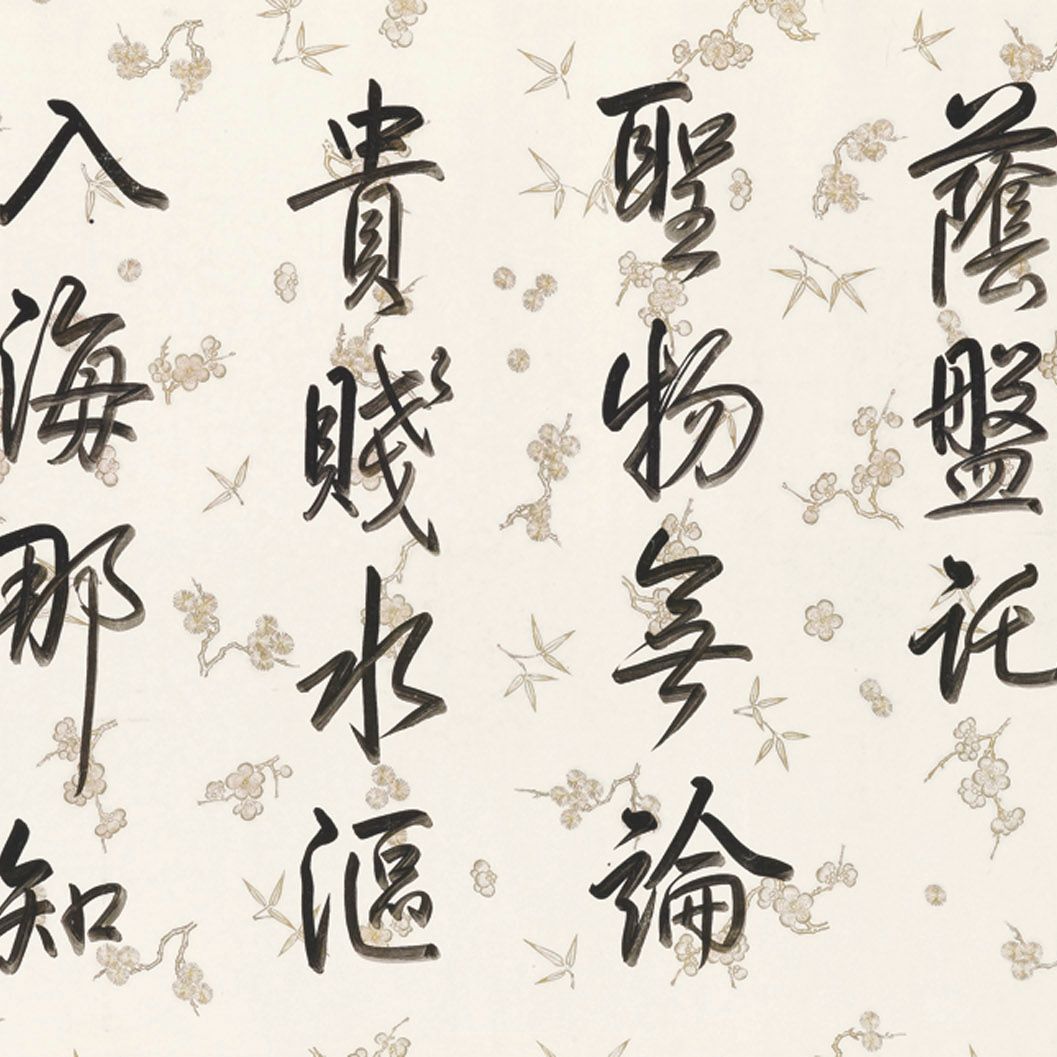 蔭盤託
聖物無論
貴賤水漚
入海那知